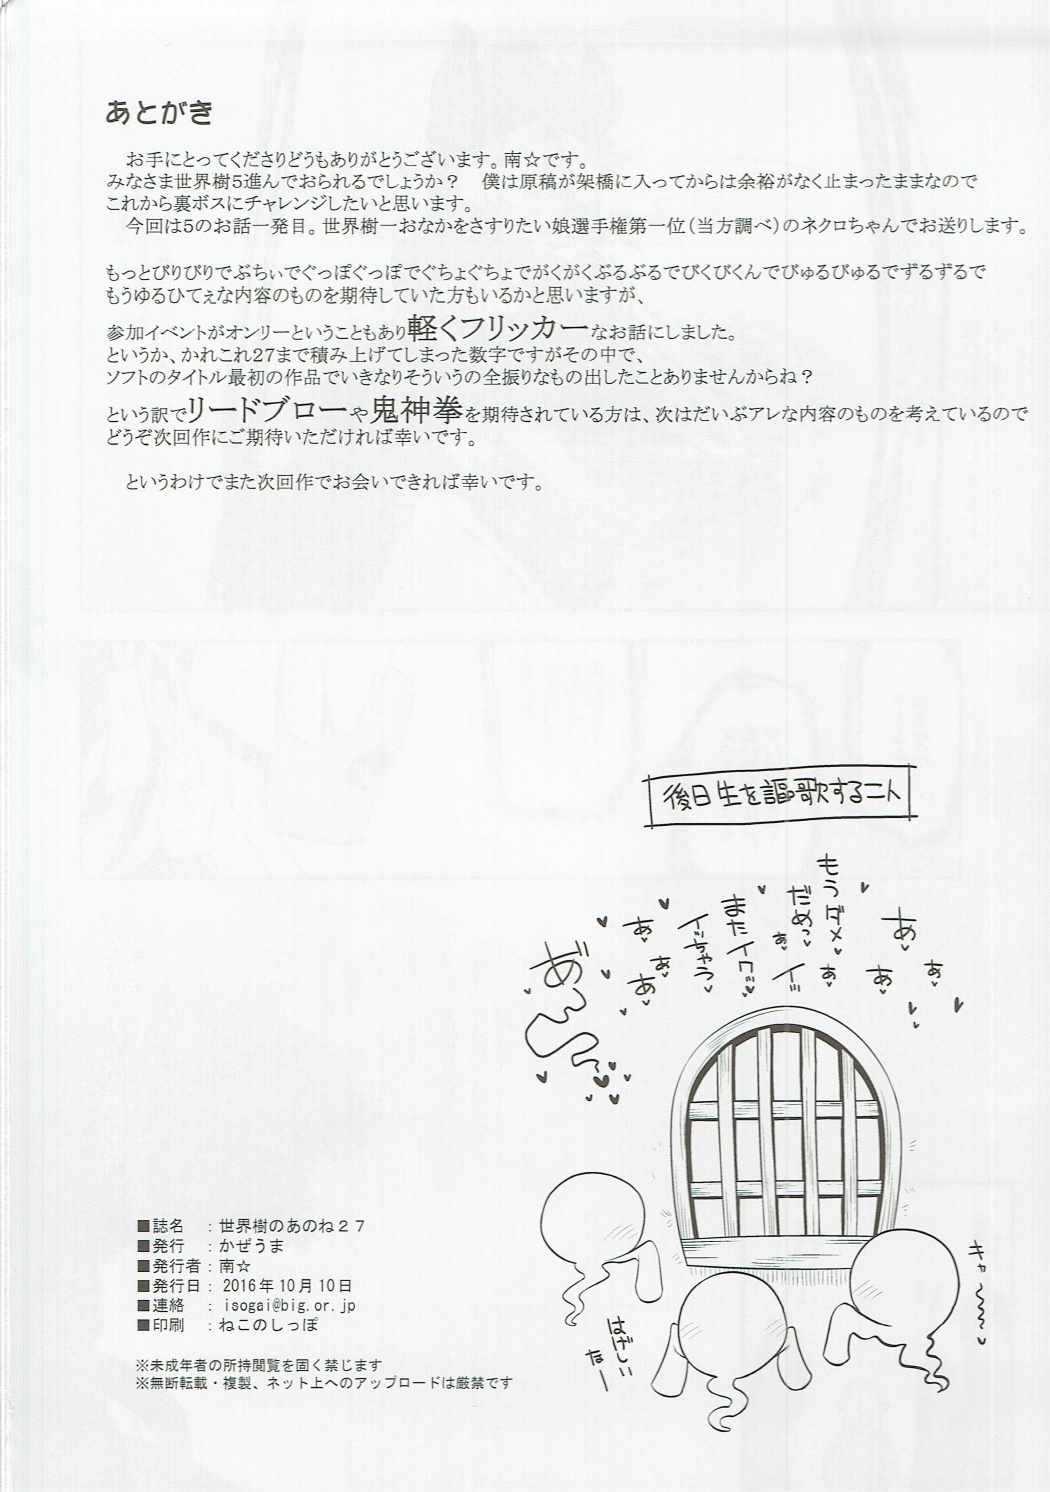 あとがき
お手にとってくださりどうもありがとうございます。南☆です。
みなさま世界樹5進んでおられるでしょうか？　僕は原稿が架橋に入ってからは余裕がなく止まったままなので
これから裏ボスにチャレンジしたいと思います。
今回は5のお話一発目。世界樹一おなかをさすりたい娘選手権第一位(当方調べ)のネクロちゃんでお送りします。
もっとびりびりでぶちぃでぐっぽぐっぽでぐちょぐちょでがくがくぶるぶるでびくびくんでびゅるびゅるでずるずるで
もうゆるひてぇな内容のものを期待していた方もいるかと思いますが、
参加イベントがオンリーということもあり軽くフリッカーなお話にしました。
というか、かれこれ27まで積み上げてしまった数字ですがその中で、
ソフトのタイトル最初の作品でいきなりそういうの全振りなもの出したことありませんからね？
という訳でリードブローや鬼神拳を期待されている方は、次はだいぶアレな内容のものを考えているので
どうぞ次回作にご期待いただければ幸いです。
というわけでまた次回作でお会いできれば幸いです。
後日生を謳歌する二人
あ♥
あ♥
あ♥
もうダメ♥
だめっ♥
あ♥
あ♥
イッ
またイクッ♥
イッちゃう♥
あ♥
あ♥
あ♥
あ゛
キャ〜♥
はげしい
なー
■誌名　：世界樹のあのね２７
■発行　：かぜうま
■発行者：南☆
■発行日： 2016年10月10日
■連絡　： isogai@big.or.jp
■印刷　：ねこのしっぽ
※未成年者の所持閲覧を固く禁じます
※無断転載・複製、ネット上へのアップロードは厳禁です